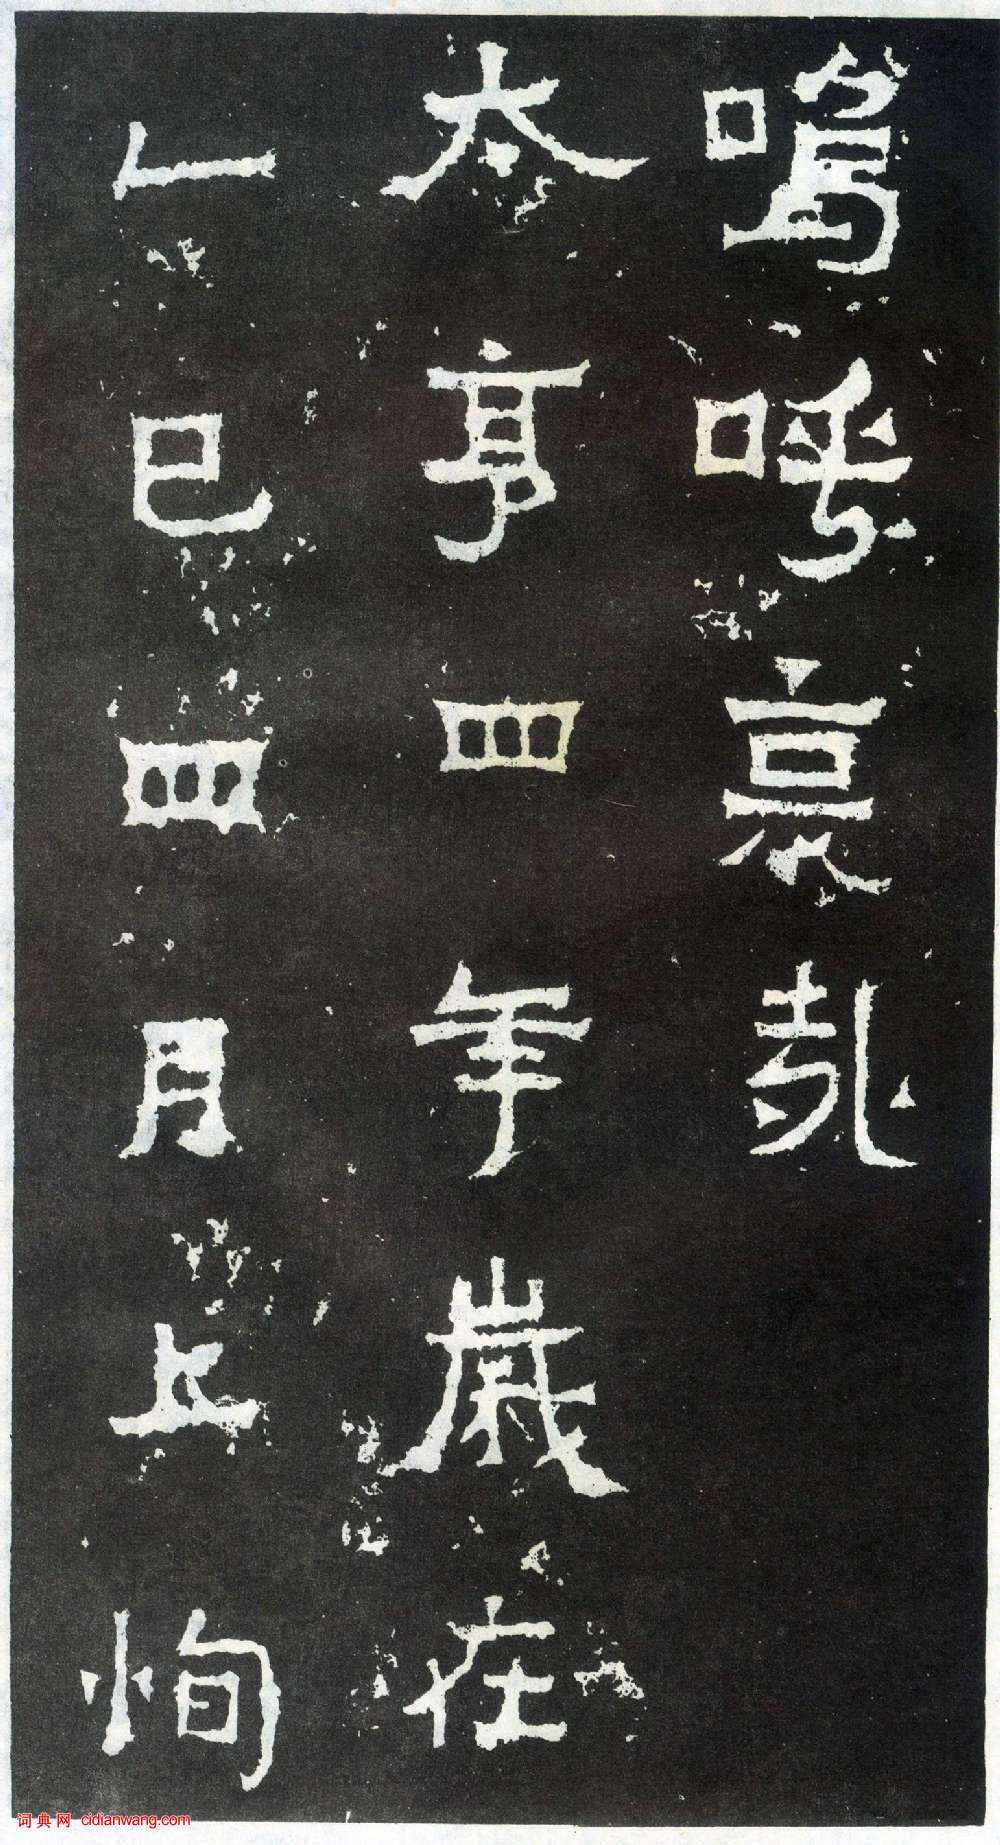 嗚呼哀哉
太亨四年歲在
乙巳四月上恂
词典网 cidianwang.com